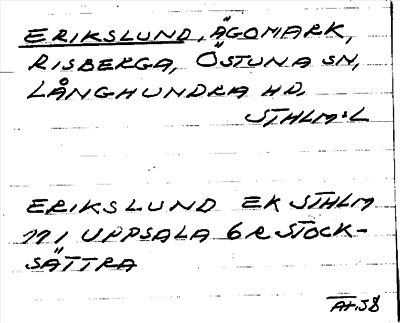 ERIKSLUND, ÄGOMARK,
RISBERGA, ÖSTUNA SN,
LÅNGHUNDRA HD,
STHLM:L
ERIKSLUND EK STHLM
111 UPPSALA 6 R STOCK-
SÄTTRA